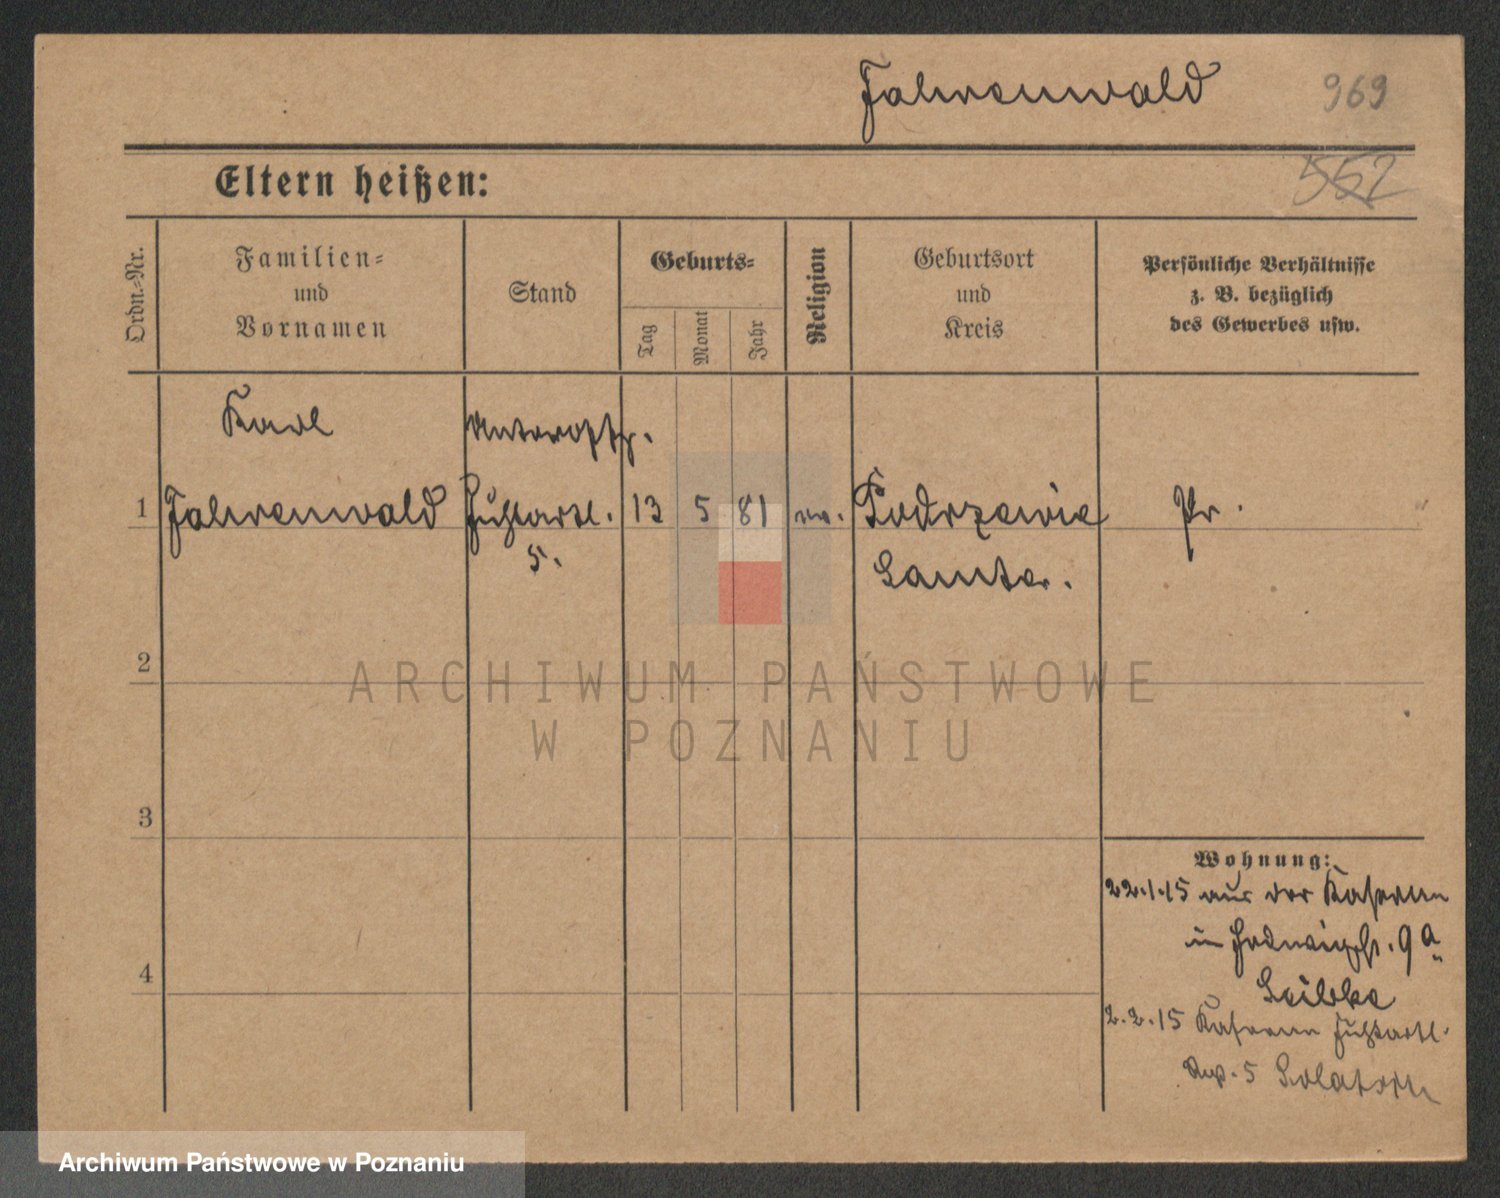 Fahrenwald
969
552
Eltern heißen:
Ordn.=Nr.
Familien=
und
Vornamen
Stand
Geburts=
Tag
Monat
Jahr
Religion
Geburtsort
und
Kreis
Persönliche Verhältnisse
z. B. bezüglich
des Gewerbes usw.
Karl
Unteroffz.
1 Fahrenwald Fußartl. 13 5 81 ev. Podrzewie Pr.
5.
Samter.
2
ARCHIWUM PAŃSTWOWE
W POZNANIU
3
4
Wohnung:
22.1.15 aus der Kaserne
in Hedwigstr. 9a
2.2.15 Kaserne Fußartl.
5
Archiwum Państwowe w Poznaniu